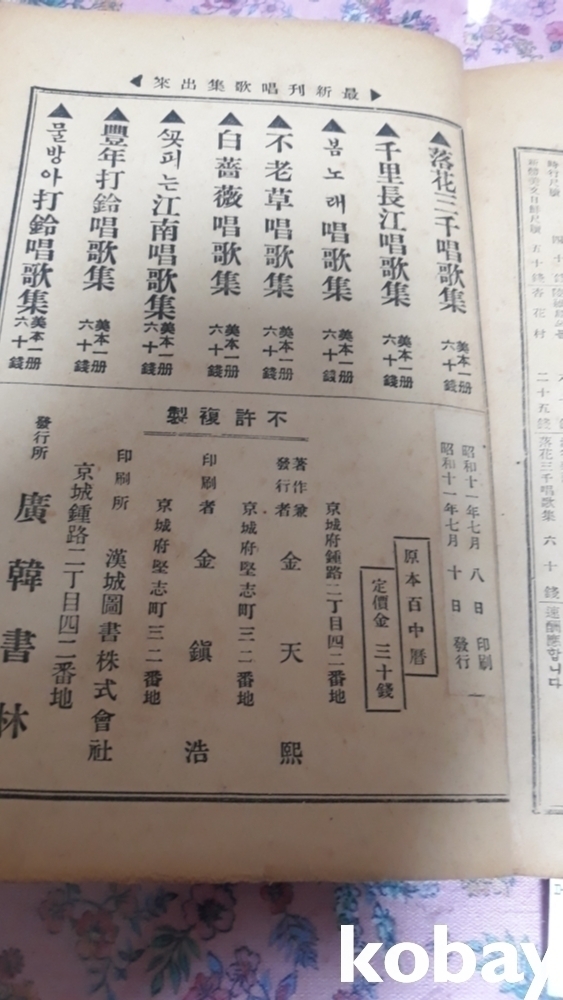 最新刊唱歌集出來
▲落花三千唱歌集 美本一册 六十錢
▲千里長江唱歌集 美本一册 六十錢
▲봄노래唱歌集 美本一册 六十錢
▲不老草唱歌集 美本一册 六十錢
▲白薔薇唱歌集 美本一册 六十錢
▲ᄭᅩᆺ피는江南唱歌集 美本一册 六十錢
▲豐年打鈴唱歌集 美本一册 六十錢
▲물방아打鈴唱歌集 美本一册 六十錢
昭和十一年七月 八日 印刷
昭和十一年七月 十日 發行
原本百中曆
定價金 三十錢
不許複製
京城府鍾路二丁目四二番地
著作兼發行者 金天熙
京城府堅志町三二番地
印刷者 金鎭浩
京城府堅志町三二番地
印刷所 漢城圖書株式會社
京城鍾路二丁目四二番地
發行所 廣韓書林
四十錢
五十錢
杏花村 二十五錢
落花三千唱歌集 六十錢
速酬應합니다
kobay